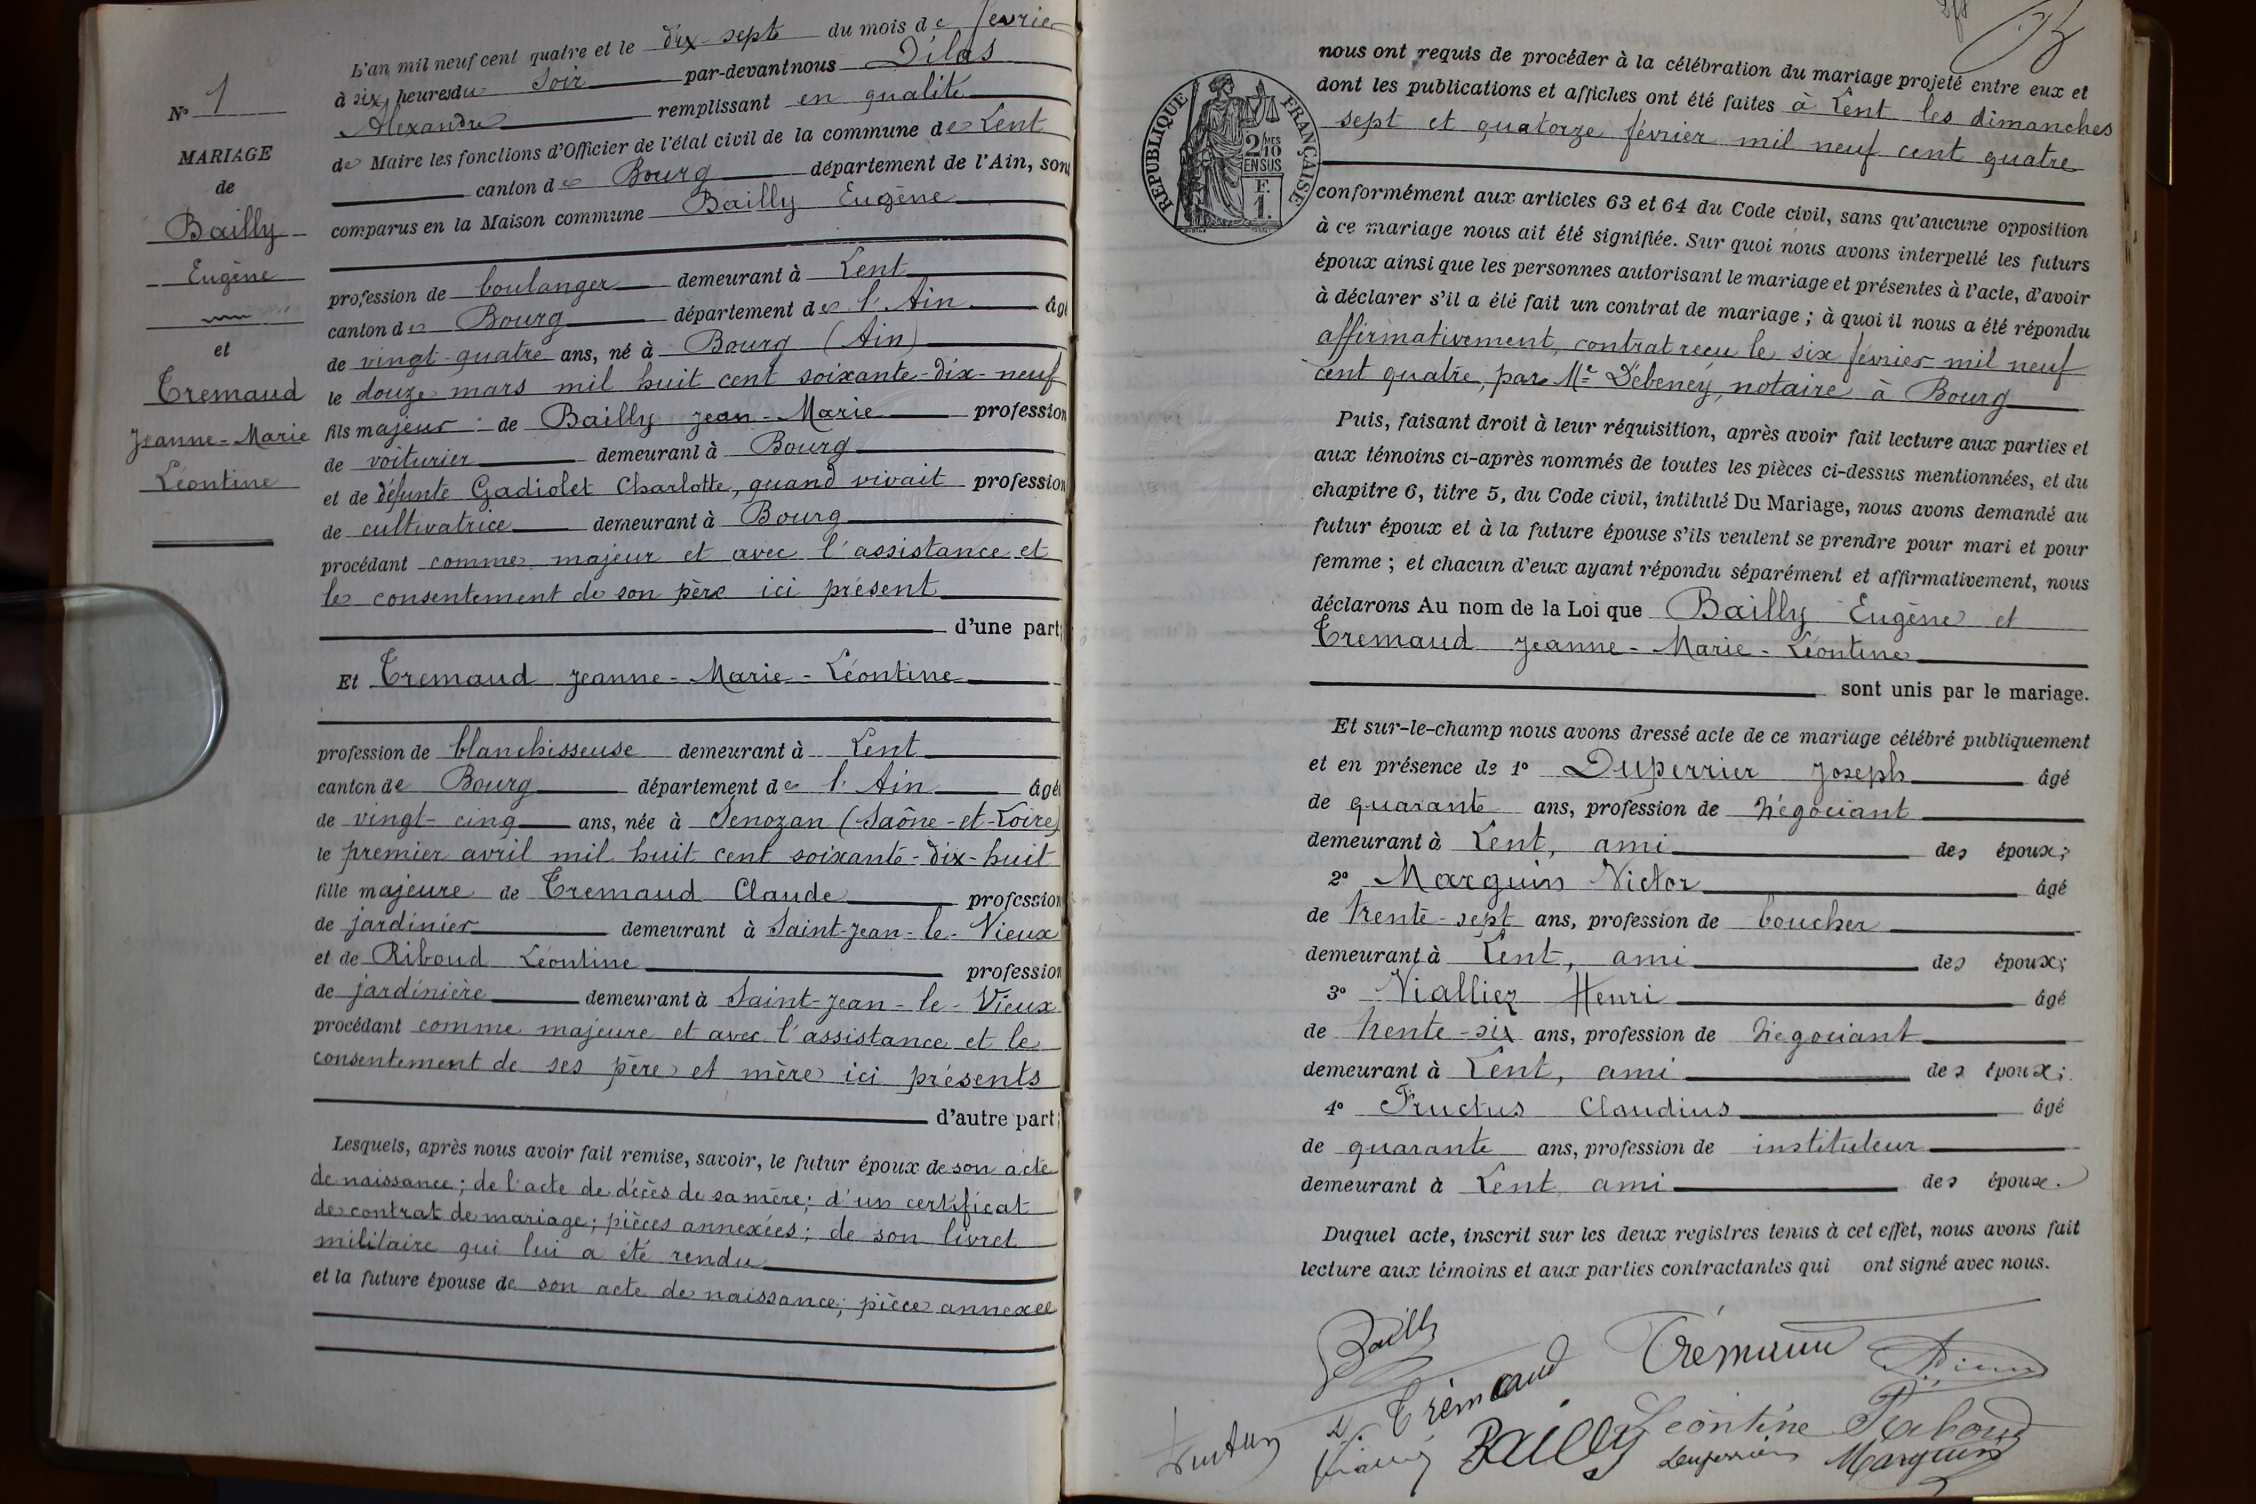 L'an mil neuf cent quatre et le dix-sept du mois de février
à six heures du Soir par-devant nous Dilas
Alexandre remplissant en qualité
de Maire les fonctions d'Officier de l'état civil de la commune de Lent
canton de Bourg département de l'Ain, sont
comparus en la Maison commune Bailly Eugène
profession de boulanger demeurant à Lent
canton de Bourg département de l'Ain âgé
de vingt-quatre ans, né à Bourg (Ain)
le douze mars mil huit cent soixante-dix-neuf
fils majeur de Bailly Jean-Marie profession
de voiturier demeurant à Bourg
et de défunte Gadiolet Charlotte, quand vivait profession
de cultivatrice demeurant à Bourg
procédant comme majeur et avec l'assistance et
le consentement de son père ici présent
d'une part;
Et Tremaud Jeanne-Marie-Léontine
profession de blanchisseuse demeurant à Lent
canton de Bourg département de l'Ain âgée
de vingt-cinq ans, née à Senozan (Saône-et-Loire)
le premier avril mil huit cent soixante-dix-huit
fille majeure de Tremaud Claude profession
de jardinier demeurant à Saint-Jean-le-Vieux
et de Riboud Léontine profession
de jardinière demeurant à Saint-Jean-le-Vieux
procédant comme majeure et avec l'assistance et le
consentement de ses père et mère ici présents
d'autre part;
Lesquels, après nous avoir fait remise, savoir, le futur époux de son acte
de naissance; de l'acte de décès de sa mère; d'un certificat
de contrat de mariage; pièces annexées; de son livret
militaire qui lui a été rendu
et la future épouse de son acte de naissance; pièce annexée
N° 1
MARIAGE
de
Bailly
Eugène
et
Tremaud
Jeanne-Marie
Léontine
RÉPUBLIQUE FRANÇAISE
2 MES
10
EN SUS
F.
1.
nous ont requis de procéder à la célébration du mariage projeté entre eux et
dont les publications et affiches ont été faites à Lent les dimanches
sept et quatorze février mil neuf cent quatre
conformément aux articles 63 et 64 du Code civil, sans qu'aucune opposition
à ce mariage nous ait été signifiée. Sur quoi nous avons interpellé les futurs
époux ainsi que les personnes autorisant le mariage et présentes à l'acte, d'avoir
à déclarer s'il a été fait un contrat de mariage; à quoi il nous a été répondu
affirmativement, contrat reçu le six février mil neuf
cent quatre, par Me Débeney, notaire à Bourg
Puis, faisant droit à leur réquisition, après avoir fait lecture aux parties et
aux témoins ci-après nommés de toutes les pièces ci-dessus mentionnées, et du
chapitre 6, titre 5, du Code civil, intitulé Du Mariage, nous avons demandé au
futur époux et à la future épouse s'ils veulent se prendre pour mari et pour
femme; et chacun d'eux ayant répondu séparément et affirmativement, nous
déclarons Au nom de la Loi que Bailly Eugène et
Tremaud Jeanne-Marie-Léontine
sont unis par le mariage.
Et sur-le-champ nous avons dressé acte de ce mariage célébré publiquement
et en présence de 1° Duperrier Joseph âgé
de quarante ans, profession de négociant
demeurant à Lent, ami des époux;
2° Marguin Victor âgé
de trente-sept ans, profession de boucher
demeurant à Lent, ami des époux;
3° Vialliez Henri âgé
de trente-six ans, profession de négociant
demeurant à Lent, ami des époux;
4° Fructus Claudius âgé
de quarante ans, profession de instituteur
demeurant à Lent ami des époux.
Duquel acte, inscrit sur les deux registres tenus à cet effet, nous avons fait
lecture aux témoins et aux parties contractantes qui ont signé avec nous.
Bailly
Trémaud
Trémaud
BAILLY
Léontine Riboud
Duperrier
Marguin